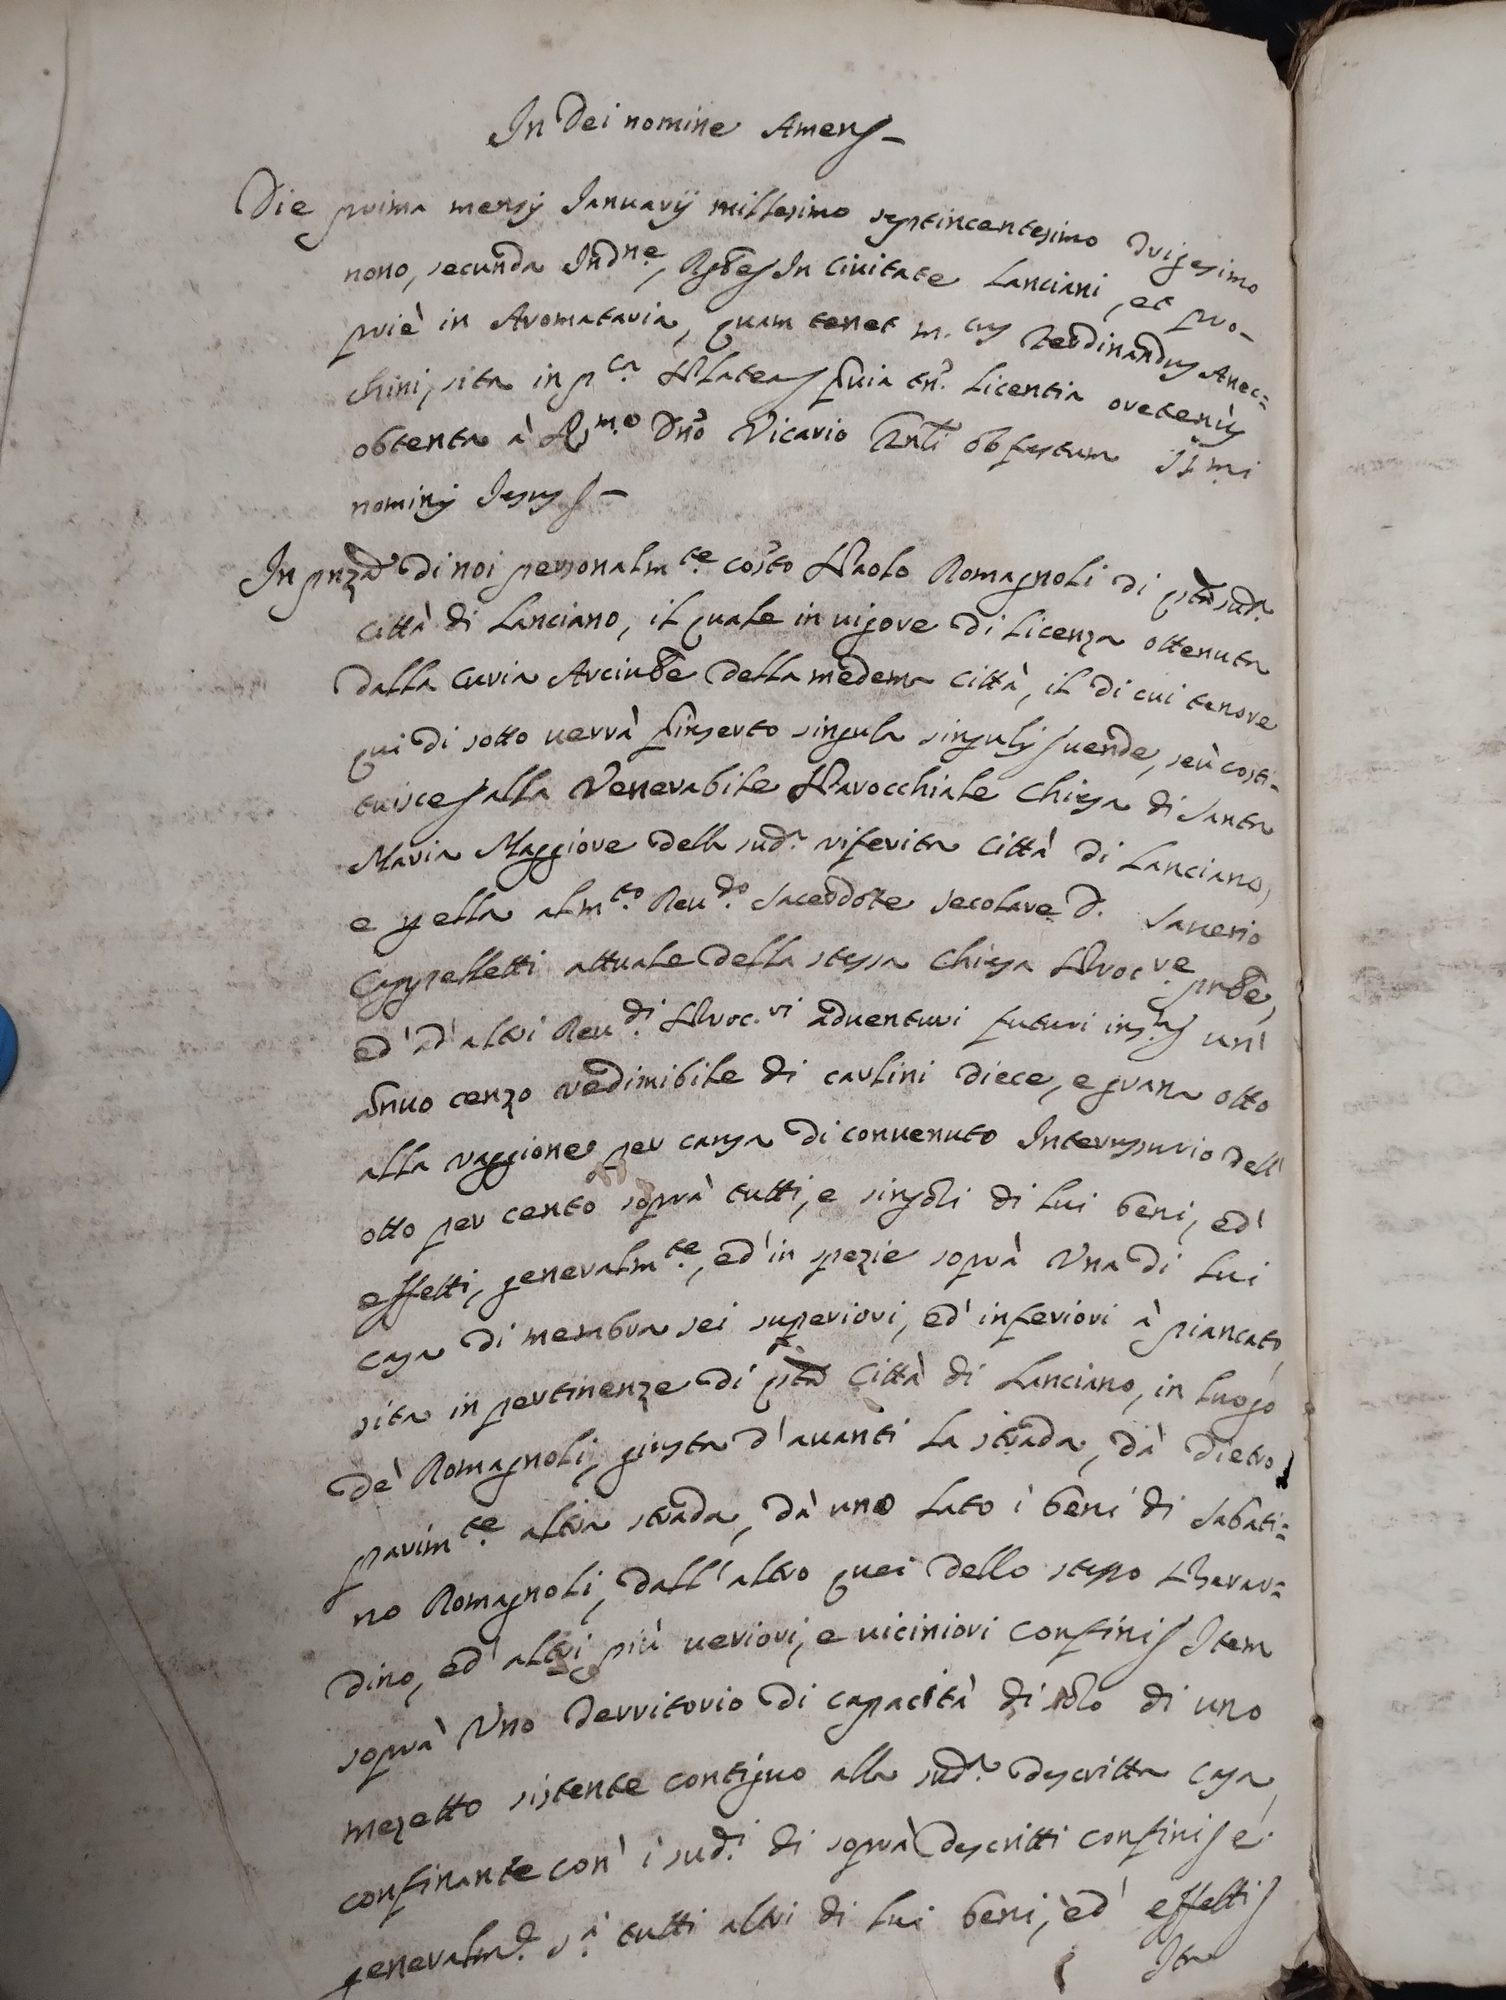 In Dei nomine Amen
Die prima mensis Januarij millesimo septincentesimo vigesimo
nono, secunda Ind.ne, In Civitate Lanciani, et pro-
priè in Aromataria, quam tenet m.cus Ferdinandus Anec=
chini, sita in p.ca Platea, quia tñ licentia
obtenta à R.mo Dño Vicario Gñli ob festum SS.mi
nominis Jesus
In pñza di noi personalm.te cos̃to Paolo Romagnoli di sud.a
Città di Lanciano, il quale in vigore di licenza ottenuta
dalla Curia Arciuble della medema Città, il di cui tenore
qui di sotto verrà inserto singula singulis, vende, seù costi-
tuisce alla Venerabile Parocchiale Chiesa di Santa
Maria Maggiore della sud.a riferita Città di Lanciano,
e p ella al m.to Reu.do Sacerdote secolare D. Saverio
Cappelletti attuale della stessa Chiesa Proc.re pñte,
ed' ad' altri Reu.di Proc.ri adventuri futuri un'
annuo cenzo redimibile di carlini diece, e grana otto
alla raggione per causa di convenuto Interusurio dell'
otto per cento soprà tutti, e singoli di lui beni, ed'
effetti, generalm.te, ed' in spezie soprà Una di lui
casa di membra sei superiori, ed' inferiori à piancato,
sita in pertinenze di pta Città di Lanciano, in luogo
dè Romagnoli, giusta d'avanti la strada, dà dietro
parim.te altra strada, dà uno lato i beni di Sabati=
no Romagnoli, dall'altro quei dello stesso Berar=
dino, ed' altri più veriori, e viciniori confini Item
soprà Uno Territorio di capacità di solo di uno
mezetto sistente contiguo alla sud.a descritta casa,
confinante con' i sud.i di soprà descritti confini, e'
generalm.e s.a tutti altri di lui beni, ed' effetti
Ita